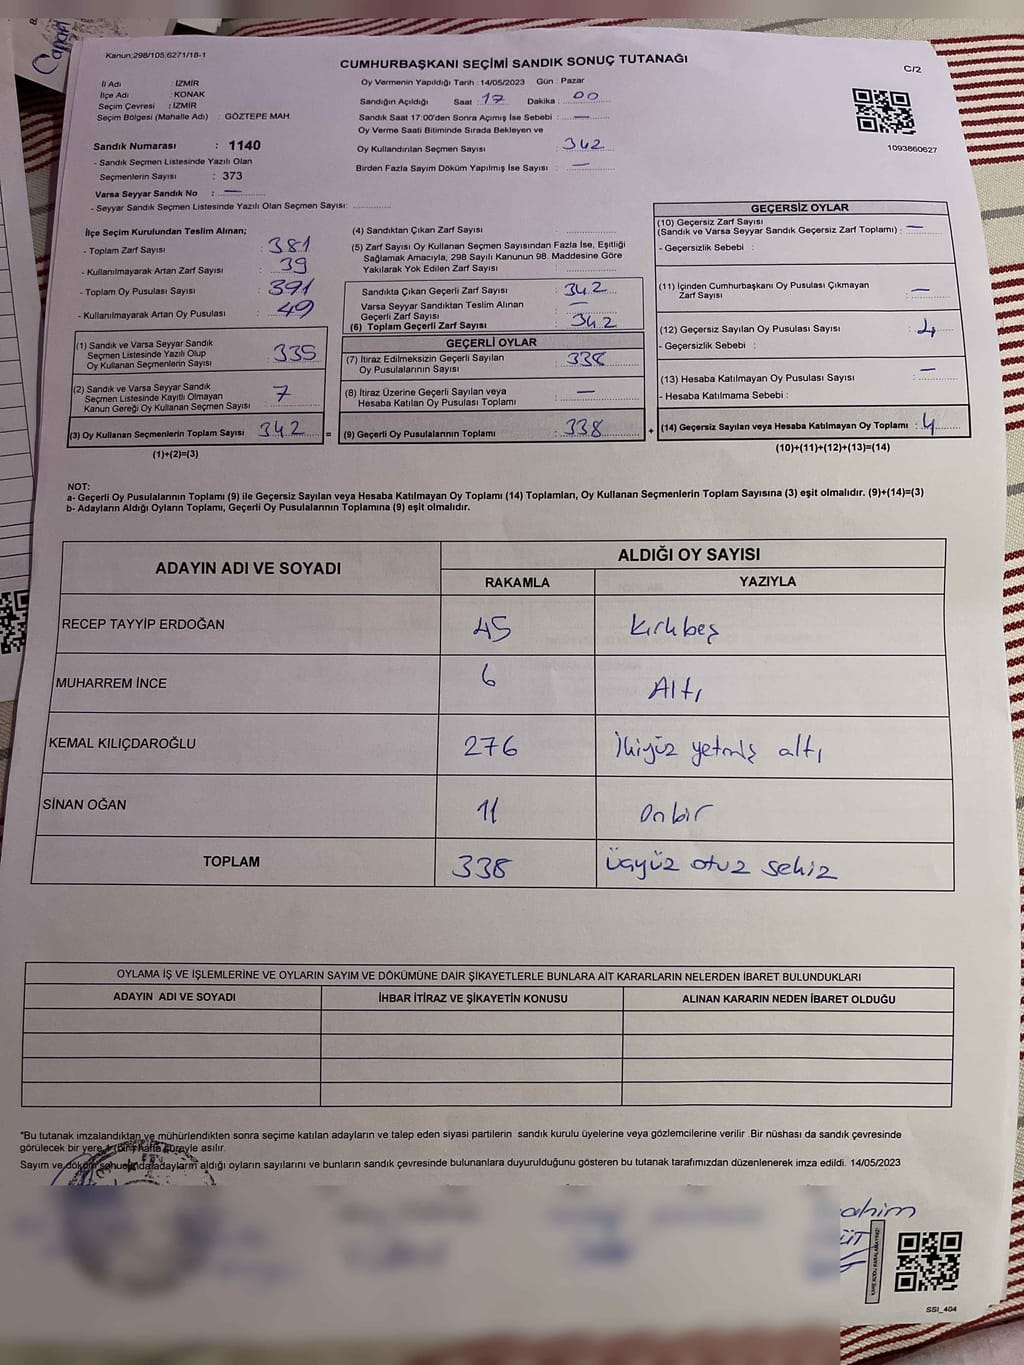 Canan
Kanun:298/105,6271/18-1
CUMHURBAŞKANI SEÇİMİ SANDIK SONUÇ TUTANAĞI
C/2
İl Adı : İZMİR
İlçe Adı : KONAK
Seçim Çevresi : İZMİR
Seçim Bölgesi (Mahalle Adı) : GÖZTEPE MAH.
Sandık Numarası : 1140
- Sandık Seçmen Listesinde Yazılı Olan
Seçmenlerin Sayısı : 373
Varsa Seyyar Sandık No : —
- Seyyar Sandık Seçmen Listesinde Yazılı Olan Seçmen Sayısı:
Oy Vermenin Yapıldığı Tarih : 14/05/2023 Gün : Pazar
Sandığın Açıldığı Saat : 17 Dakika : 00
Sandık Saat 17:00'den Sonra Açımış İse Sebebi : —
Oy Verme Saati Bitiminde Sırada Bekleyen ve
Oy Kullandırılan Seçmen Sayısı : 342
Birden Fazla Sayım Döküm Yapılmış İse Sayısı : —
1093860627
İlçe Seçim Kurulundan Teslim Alınan;
- Toplam Zarf Sayısı : 381
- Kullanılmayarak Artan Zarf Sayısı : 39
- Toplam Oy Pusulası Sayısı : 391
- Kullanılmayarak Artan Oy Pusulası : 49
(1) Sandık ve Varsa Seyyar Sandık
Seçmen Listesinde Yazılı Olup
Oy Kullanan Seçmenlerin Sayısı : 335
(2) Sandık ve Varsa Seyyar Sandık
Seçmen Listesinde Kayıtlı Olmayan
Kanun Gereği Oy Kullanan Seçmen Sayısı : 7
(3) Oy Kullanan Seçmenlerin Toplam Sayısı : 342 =
(1)+(2)=(3)
(4) Sandıktan Çıkan Zarf Sayısı :
(5) Zarf Sayısı Oy Kullanan Seçmen Sayısından Fazla İse, Eşitliği
Sağlamak Amacıyla, 298 Sayılı Kanunun 98. Maddesine Göre
Yakılarak Yok Edilen Zarf Sayısı :
Sandıkta Çıkan Geçerli Zarf Sayısı : 342
Varsa Seyyar Sandıktan Teslim Alınan
Geçerli Zarf Sayısı : —
(6) Toplam Geçerli Zarf Sayısı : 342
GEÇERLİ OYLAR
(7) İtiraz Edilmeksizin Geçerli Sayılan
Oy Pusulalarının Sayısı : 338
(8) İtiraz Üzerine Geçerli Sayılan veya
Hesaba Katılan Oy Pusulası Toplamı : —
(9) Geçerli Oy Pusulalarının Toplamı : 338 +
GEÇERSİZ OYLAR
(10) Geçersiz Zarf Sayısı
(Sandık ve Varsa Seyyar Sandık Geçersiz Zarf Toplamı) : —
- Geçersizlik Sebebi :
(11) İçinden Cumhurbaşkanı Oy Pusulası Çıkmayan
Zarf Sayısı : —
(12) Geçersiz Sayılan Oy Pusulası Sayısı : 4
- Geçersizlik Sebebi :
(13) Hesaba Katılmayan Oy Pusulası Sayısı : —
- Hesaba Katılmama Sebebi :
(14) Geçersiz Sayılan veya Hesaba Katılmayan Oy Toplamı : 4
(10)+(11)+(12)+(13)=(14)
NOT:
a- Geçerli Oy Pusulalarının Toplamı (9) ile Geçersiz Sayılan veya Hesaba Katılmayan Oy Toplamı (14) Toplamları, Oy Kullanan Seçmenlerin Toplam Sayısına (3) eşit olmalıdır. (9)+(14)=(3)
b- Adayların Aldığı Oyların Toplamı, Geçerli Oy Pusulalarının Toplamına (9) eşit olmalıdır.
ADAYIN ADI VE SOYADI ALDIĞI OY SAYISI
RAKAMLA YAZIYLA
RECEP TAYYİP ERDOĞAN 45 Kırkbeş
MUHARREM İNCE 6 Altı
KEMAL KILIÇDAROĞLU 276 İkiyüz yetmiş altı
SİNAN OĞAN 11 Onbir
TOPLAM 338 üçyüz otuz sekiz
OYLAMA İŞ VE İŞLEMLERİNE VE OYLARIN SAYIM VE DÖKÜMÜNE DAİR ŞİKAYETLERLE BUNLARA AİT KARARLARIN NELERDEN İBARET BULUNDUKLARI
ADAYIN ADI VE SOYADI İHBAR İTİRAZ VE ŞİKAYETİN KONUSU ALINAN KARARIN NEDEN İBARET OLDUĞU
*Bu tutanak imzalandıktan ve mühürlendikten sonra seçime katılan adayların ve talep eden siyasi partilerin sandık kurulu üyelerine veya gözlemcilerine verilir .Bir nüshası da sandık çevresinde
görülecek bir yere 1 (Bir) hafta süreyle asılır.
Sayım ve döküm sonucunda adayların aldığı oyların sayılarını ve bunların sandık çevresinde bulunanlara duyurulduğunu gösteren bu tutanak tarafımızdan düzenlenerek imza edildi. 14/05/2023
KARE KODU KARALAMAYINIZ!
SSI_404